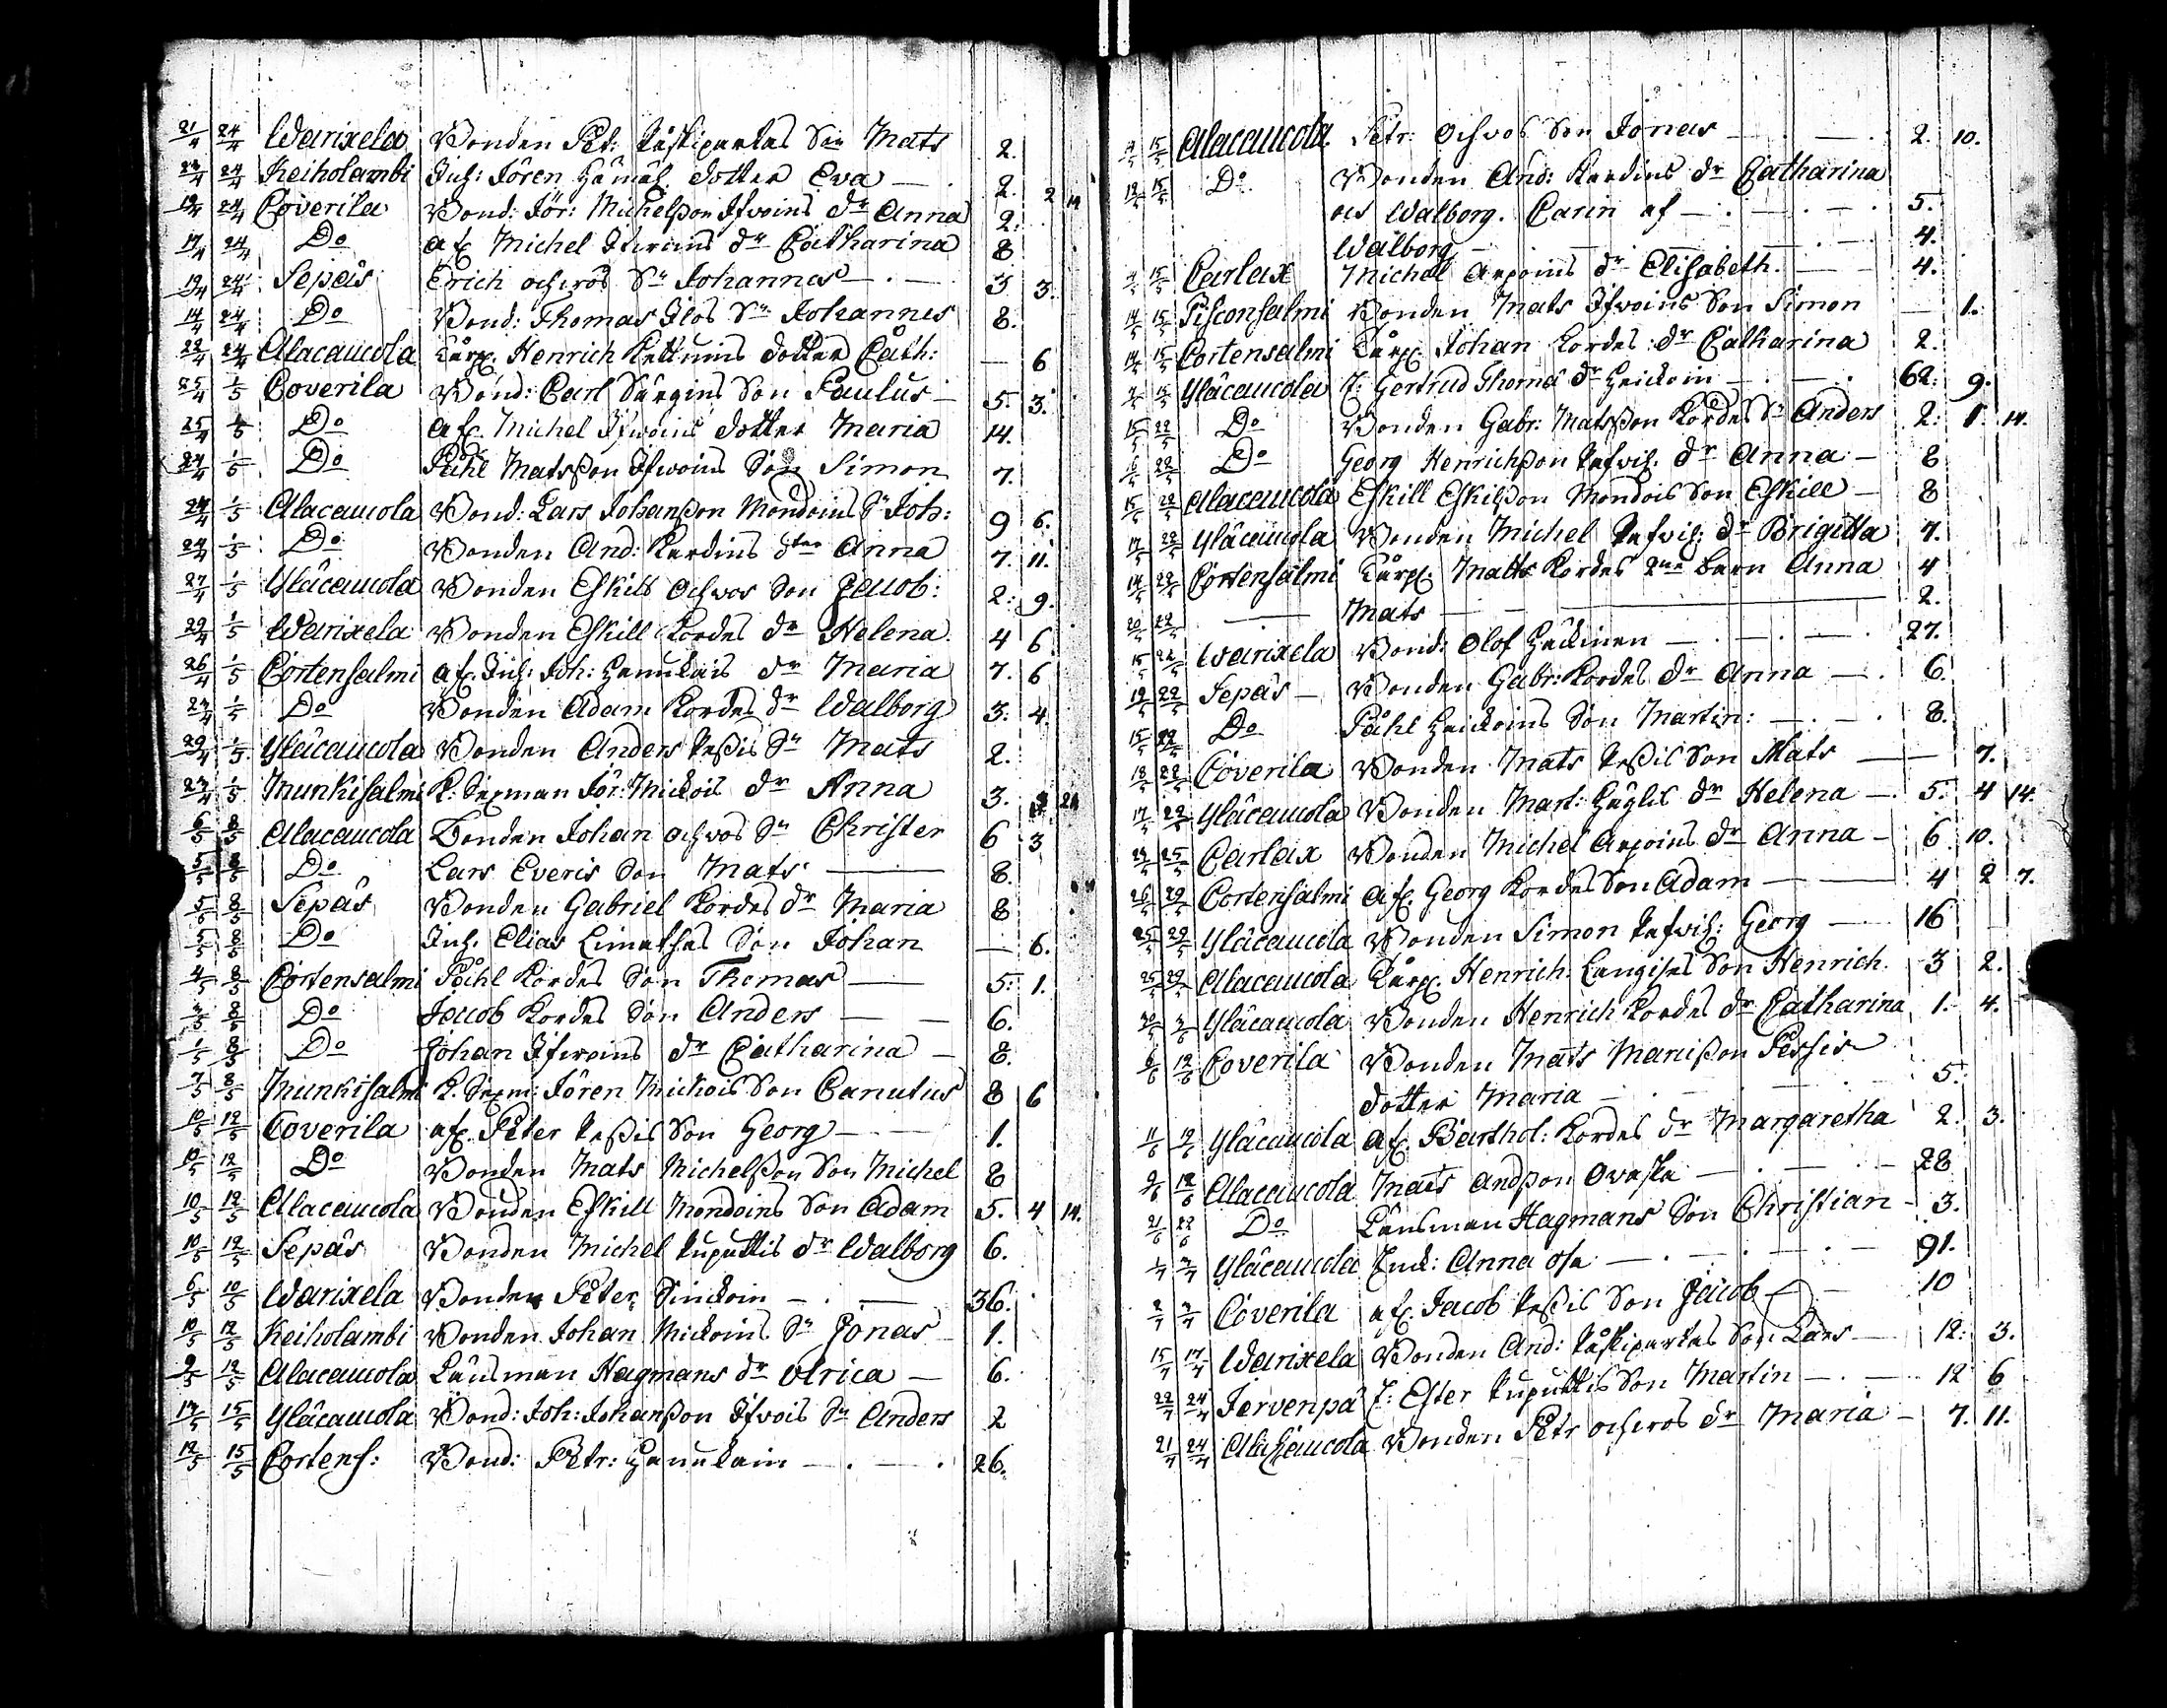 21/4 24/4 Warixela Bonden Pet: Räskiparkas Son Mats 2.
23/4 24/4 Keiholambi Inh: Jören Hämäl. dotter Eva — 2. 2 14
19/4 24/4 Coverila Bond: Jör: Michelßon Ifvoins dr Anna 2.
17/4 24/4 Do afsk. Michel Ifvoins dr Catharina 8
19/4 24/4 Sepäis Erich ochvos Sn Johannes — . — 3 3.
14/4 24/4 Do Bond: Thomas Ilos Sn Johannes 8.
22/4 24/4 Alacaucola Kärp. Henrich Kettunins dotter Cath: — 6
25/4 1/5 Coverila Bond: Carl Särgins Son Paulus — 5. 3.
25/4 1/5 Do afsk. Michel Ifvoins dotter Maria 14.
24/4 1/5 Do Påhl Matsßon Ifvoins Son Simon 7.
24/4 1/5 Alacaucola Bond: Lars Johanßon Mondoins Sn Joh: 9 6.
24/4 1/5 Do Bonden And: Kardins dter Anna 7. 11.
27/4 1/5 Yläcaucola Bonden Eskils Ochvos Son Jacob: 2: 9.
29/4 1/5 Warixela Bonden Eskill Kordes dr Helena 4 6
26/4 1/5 Cortensalmi afsk. Inh: Joh: Hanukais dr Maria 7. 6
1/5 Do Bonden Adam Kordes dr Walborg 3: 4.
29/4 1/5. Yläcaucola Bonden Anders Peßis Sn Mats 2.
1/5 Munkisalmi K. Sexman Jör: Mickois dr Anna 3.
6/5 8/5 Alacaucola Bonden Johan ochvos Sn Christer 6 3
5/5 8/5 Do Lars Everis Son Mats — 8.
5/5 8/5 Sepäs Bonden Gabriel Kordes dr Maria 8
5/5 8/5 Do Inh. Elias Limathas Son Johan — 6.
4/5 8/5 Cortensalmi Påhl Kordes Son Thomas — 5: 1.
8/5 Do Jacob Kordes Son Anders — — 6.
1/5 8/5 Do Johan Ifvoins dr Catharina — 8.
7/5 8/5 Munkisalmi K. Sexm: Jören Mickois Son Canutus 8 6
10/5 12/5 Coverila afsk. Peter Peßis Son Georg — — 1.
10/5 12/5 Do Bonden Mats Michelßon Son Michel 8
10/5 12/5 Alacaucola Bonden Eskill Mondoins Son Adam 5. 4 14.
10/5 12/5 Sepäs Bonden Michel Kuputtis dr Walborg 6.
6/5 10/5 Warixela Bonden Peter Sinckoin — . — 36.
10/5 12/5 Keiholambi Bonden Johan Mickoins Sn Jonas 1.
9/5 12/5 Alacaucola Länsman Hagmans dr Ulrica — 6.
14/5 15/5 Yläcaucola Bond: Joh: Johanßon Ifvois Sn Anders 2
12/5 15/5 Cortens: Bond: Petr: Hanukain — . — . 26.
15/5 Alacaucola. Petr: Ochvos Son Jonas — . — . 2. 10.
12/5 15/5 Do Bonden And: Kardins dr Catharina
och Walborg. Carin af — . — . — . 5.
Walborg — . — . — . 4.
15/5 Carlax Michel Arpoins dr Elisabeth. — 4.
14/5 15/5 Pisconsalmi Bonden Mats Ifvoins Son Simon — 1.
14/5 15/5 Cortensalmi Kärp. Johan Kordes dr Catharina 2.
15/5 Yläcaucola J: Gertrud Thoma dr Heickoin — . — . 62: 9.
15/5 22/5 Do Bonden Gabr: Matsßon Kordes Sn Anders 2: 1. 14.
16/5 22/5 Do Georg Henrichßon Rafvih: dr Anna — 8
15/5 22/5 Alacaucola Eskill Eskilßon Mondois Son Eskill — 8
17/5 22/5 Yläcaucola Bonden Michel Rafvih: dr Brigitta 7.
14/5 22/5 Cortensalmi Kärp. Matts Kordes 2ne barn Anna 4
20/5 22/5 — Mats — 2.
15/5 22/5 Warixela Bond: Olof Hackinen — . — . — . 27.
19/5 22/5 Sepäs — Bonden Gabr: Kordes dr Anna — . 6.
15/5 22/5 Do Påhl Heickoins Son Martin: — . — . 8.
18/5 22/5 Coverila Bonden Mats Peßis Son Mats — — 7.
17/5 22/5 Yläcaucola Bonden Mart: Häglis dr Helena — . 5: 4 14.
24/5 25/5 Carlax Bonden Michel Arpoins dr Anna — 6 10.
26/5 29/5 Cortensalmi afsk. Georg Kordes Son Adam — — 4 2 7.
25/5 29/5 Yläcaucola Bonden Simon Rafvih: Georg — 16
25/5 29/5 Alacaucola Kärp. Henrich Langises Son Henrich 3 2.
30/5 Yläcaucola Bonden Henrich Kordes dr Catharina 1. 4.
6/6 12/6 Coverila Bonden Mats Manißon Pessis
dotter Maria — . — 5.
11/6 12/6 Yläcaucola afsk. Barthol: Kordes dr Margaretha 2. 3.
9/6 12/6 Alacaucola Mats Andßon Ovaska — . — . — 28
21/6 22/6 Do Länsman Hagmans Son Christian — 3.
1/7 Yläcaucola Enck: Anna Osa — . — . — . 91.
Coverila afsk. Jacob Peßis Son Jacob — — 10
15/7 17/7 Warixela Bonden And: Räskiparkas Son Lars — 12: 3.
22/7 24/7 Jervenpä J: Ester Kuputtis Son Martin — . — . 12 6
21/7 24/7 Alacaucola Bonden Petr ochvos dr Maria — 7. 11.